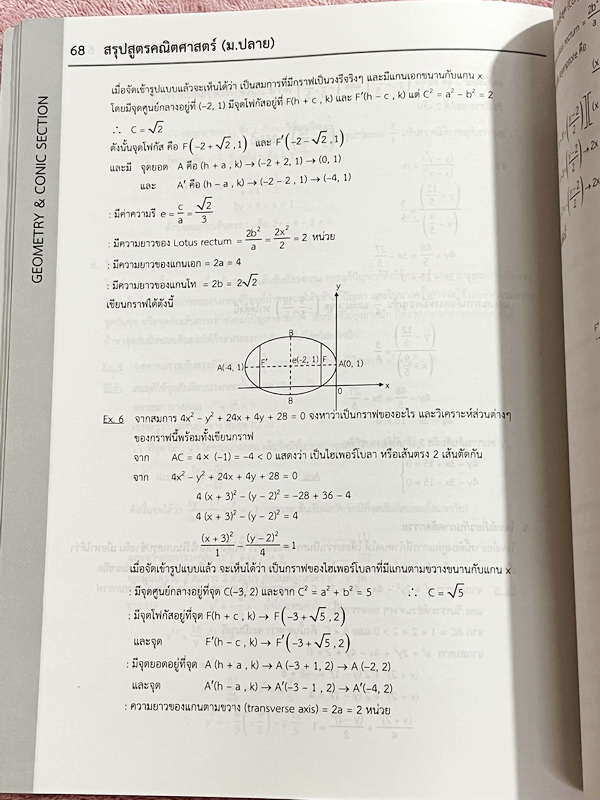 68 สรุปสูตรคณิตศาสตร์ (ม.ปลาย)
GEOMETRY & CONIC SECTION
เมื่อจัดเข้ารูปแบบแล้วจะเห็นได้ว่า เป็นสมการที่มีกราฟเป็นวงรีจริงๆ และมีแกนเอกขนานกับแกน x
โดยมีจุดศูนย์กลางอยู่ที่ (-2, 1) มีจุดโฟกัสอยู่ที่ F(h + c , k) และ F′(h − c , k) แต่ C² = a² − b² = 2
∴ C = √2
ดังนั้นจุดโฟกัส คือ F(−2 + √2 , 1) และ F′(−2 − √2 , 1)
และมี จุดยอด A คือ (h + a , k) → (−2 + 2, 1) → (0, 1)
และ A′ คือ (h − a , k) → (−2 − 2 , 1) → (−4, 1)
: มีค่าความรี e = c/a = √2/3
: มีความยาวของ Lotus rectum = 2b²/a = 2x²/2 = 2 หน่วย
: มีความยาวของแกนเอก = 2a = 4
: มีความยาวของแกนโท = 2b = 2√2
เขียนกราฟได้ดังนี้
y
B
A(-4, 1) F′ e(-2, 1) F A(0, 1)
B 0 x
Ex. 6 จากสมการ 4x² − y² + 24x + 4y + 28 = 0 จงหาว่าเป็นกราฟของอะไร และวิเคราะห์ส่วนต่างๆ
ของกราฟนี้พร้อมทั้งเขียนกราฟ
จาก AC = 4 × (−1) = −4 < 0 แสดงว่า เป็นไฮเพอร์โบลา หรือเส้นตรง 2 เส้นตัดกัน
จาก 4x² − y² + 24x + 4y + 28 = 0
4 (x + 3)² − (y − 2)² = −28 + 36 − 4
4 (x + 3)² − (y − 2)² = 4
(x + 3)²/1 − (y − 2)²/4 = 1
เมื่อจัดเข้ารูปแบบแล้ว จะเห็นได้ว่า เป็นกราฟของไฮเพอร์โบลาที่มีแกนตามขวางขนานกับแกน x
: มีจุดศูนย์กลางอยู่ที่จุด C(−3, 2) และจาก C² = a² + b² = 5 ∴ C = √5
: มีจุดโฟกัสอยู่ที่จุด F(h + c , k) → F(−3 + √5 , 2)
และจุด F′(h − c , k) → F′(−3 + √5 , 2)
: มีจุดยอดอยู่ที่จุด A (h + a , k) → A (−3 + 1, 2) → A (−2, 2)
และจุด A′(h − a , k) → A′(−3 − 1 , 2) → A′(−4, 2)
: ความยาวของแกนตามขวาง (transverse axis) = 2a = 2 หน่วย